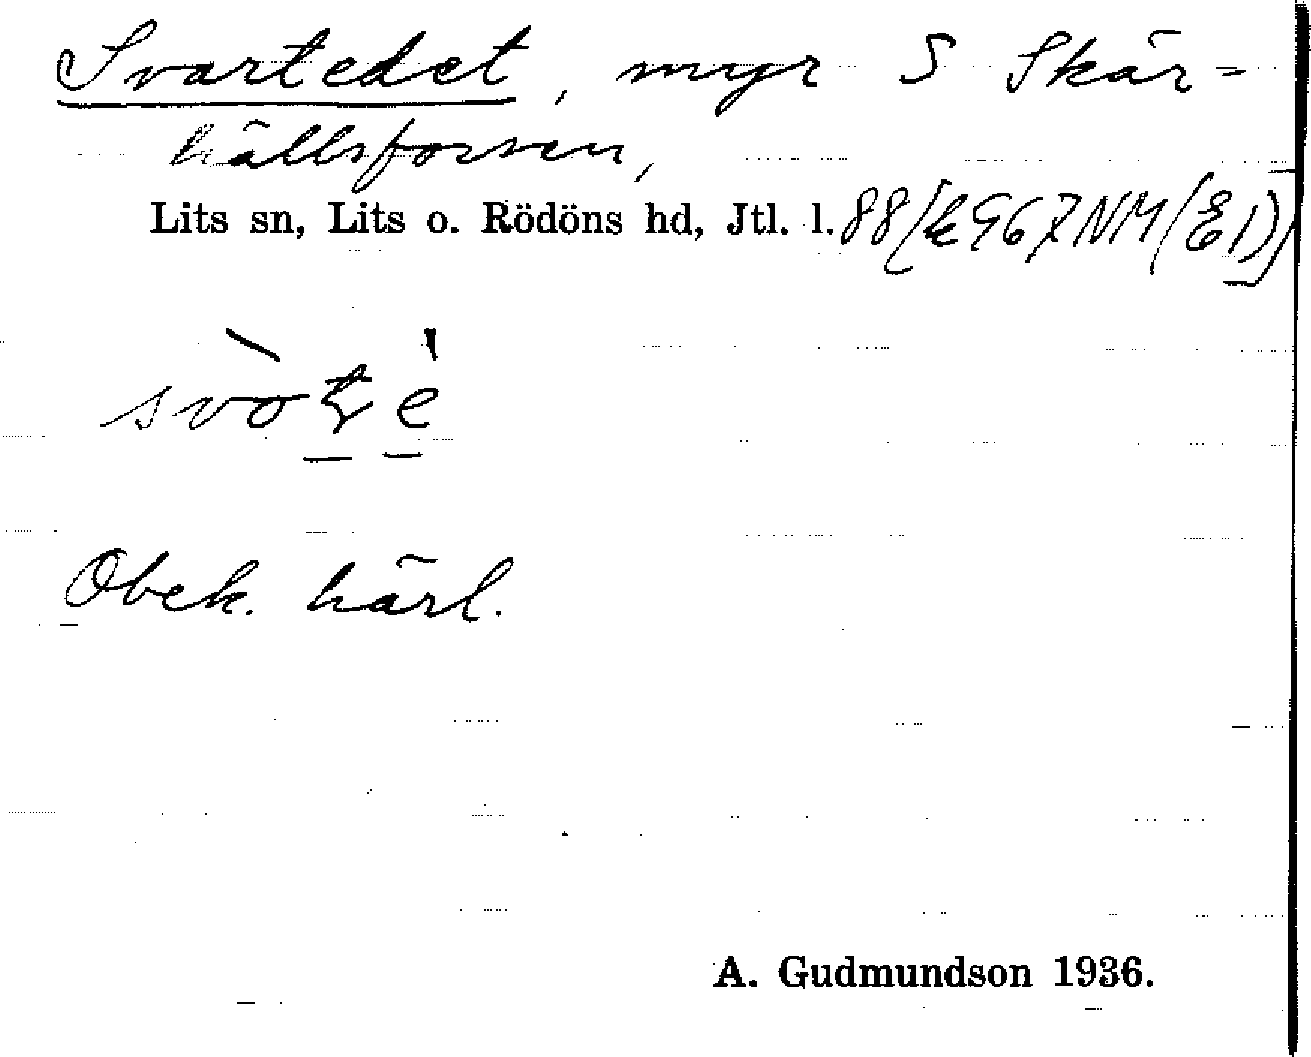 Svartedet, myr S Skär-
hällsforsen,
Lits sn, Lits o. Rödöns hd, Jtl. l.
Obek. härl.
A. Gudmundson 1936.